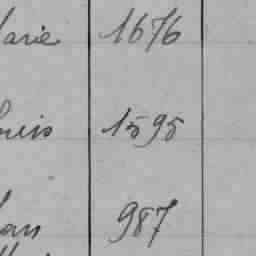 arie 1676
ouis 1595
an 987